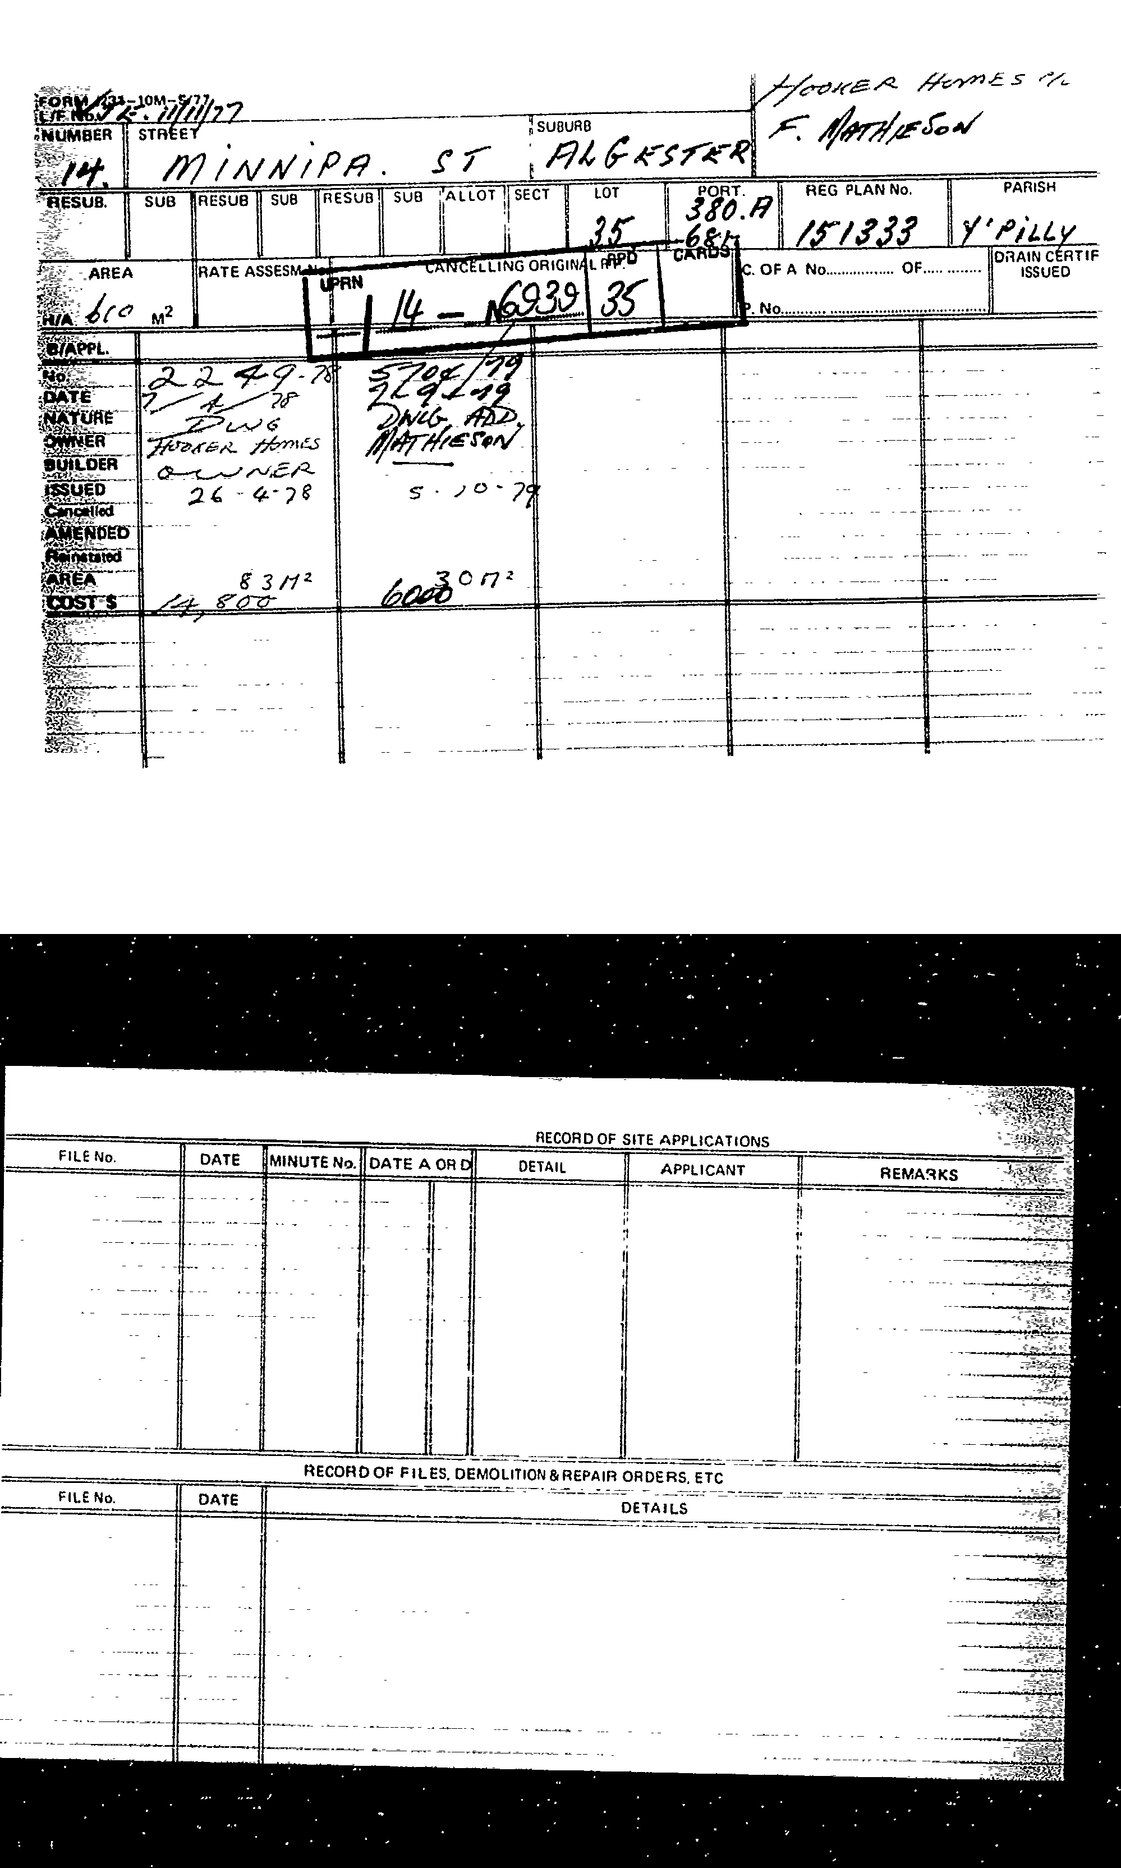 HOOKER HOMES P/L
FORM 231-10M-5/77
L/F No. 11/11/77
NUMBER STREET SUBURB F. MATHIESON
14. MINNIPA. ST ALGESTER
RESUB. SUB RESUB SUB RESUB SUB ALLOT SECT LOT PORT. REG PLAN No. PARISH
380.A
35 151333 Y'PILLY
AREA RATE ASSESM CANCELLING ORIGINAL R.P. RPD CARDS C. OF A No. OF DRAIN CERTIF
ISSUED
UPRN
H/A 610 M² 14 - N6939 35 P. No.
B/APPL.
No. 2249-78 5704/79
DATE 7/4/78
NATURE DWG DWG ADD.
OWNER HOOKER HOMES MATHIESON
BUILDER OWNER
ISSUED 26-4-78 5-10-79
Cancelled
AMENDED
Reinstated
AREA 83 M² 30 M²
COST $ 14,800 6000
RECORD OF SITE APPLICATIONS
FILE No. DATE MINUTE No. DATE A OR D DETAIL APPLICANT REMARKS
RECORD OF FILES, DEMOLITION & REPAIR ORDERS, ETC
FILE No. DATE DETAILS